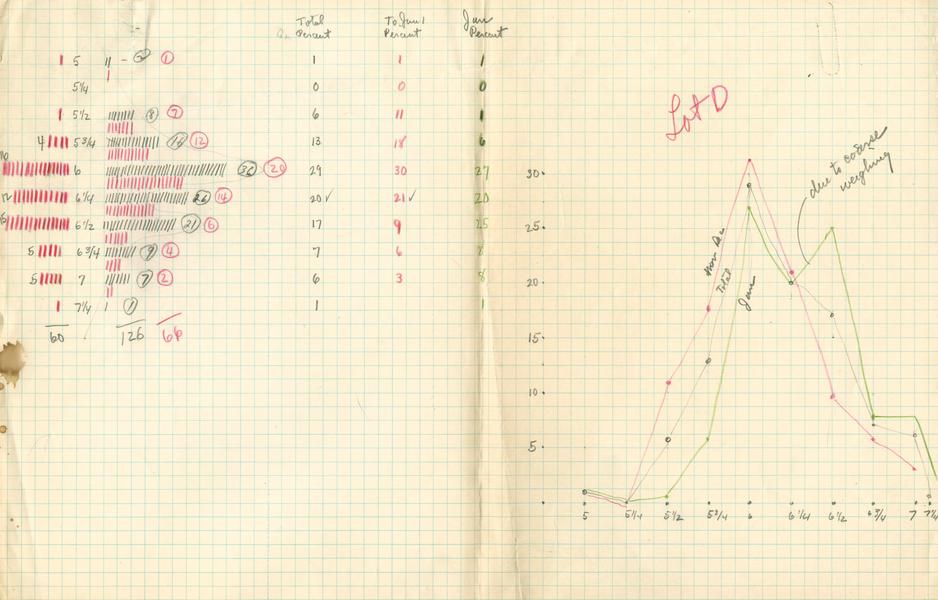 Total To Jan 1 Jan
Percent Percent Percent
5 ② ① 1 1 1
5 1/4 0 0 0
5 1/2 ⑧ ⑦ 6 11 1
4 5 3/4 ⑫ 13 18 6
10 6 ㊱ ⑳ 29 30 27
12 6 1/4 ㉖ ⑭ 20 ✓ 21 ✓ 20
6 1/2 ㉑ ⑥ 17 9 25
5 6 3/4 ⑨ ④ 7 6 8
5 7 ⑦ ② 6 3 8
7 1/4 ① 1 1
60 126 66
Lot D
due to coarse
weighing
Total
Jan
30
25
20
15
10
5
5 5 1/4 5 1/2 5 3/4 6 6 1/4 6 1/2 6 3/4 7 7 1/4